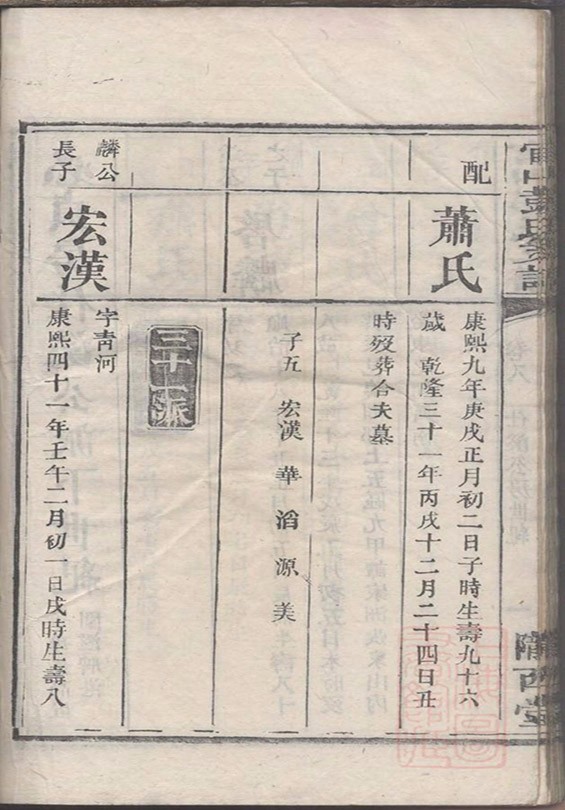 配
蕭氏
康熙九年庚戌正月初二日子時生壽九十六
歲 乾隆三十一年丙戌十二月二十四日丑
時歿葬合夫墓
子五 宏漢 華 滔 源 美
三十一派
鱗公
長子
宏漢
字青河
康熙四十一年壬午二月初一日戌時生壽八
隴西堂